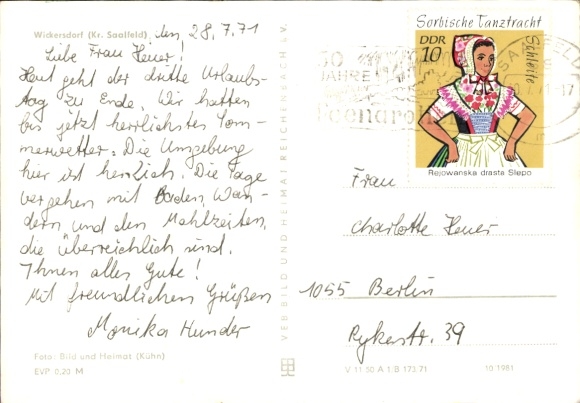 Wickersdorf (Kr. Saalfeld) den 28.7.71
Liebe Frau Heuer!
Heut geht der dritte Urlaubs-
tag zu Ende. Wir hatten
bis jetzt herrlichstes Som-
merwetter. Die Umgebung
hier ist herrlich. Die Tage
vergehen mit Baden, Wan-
dern und den Mahlzeiten,
die überreichlich sind.
Ihnen alles Gute!
Mit freundlichen Grüßen
Monika Hunder
Foto: Bild und Heimat (Kühn)
EVP 0,20 M
VEB BILD UND HEIMAT REICHENBACH i.V.
Sorbische Tanztracht
DDR
10
Schleife
Rejowanska drasta Slepo
50
JAHRE
SAALFELD
Frau
Charlotte Heuer
1055 Berlin
Rykestr. 39
V 11 50 A 1/B 173/71 10/1981